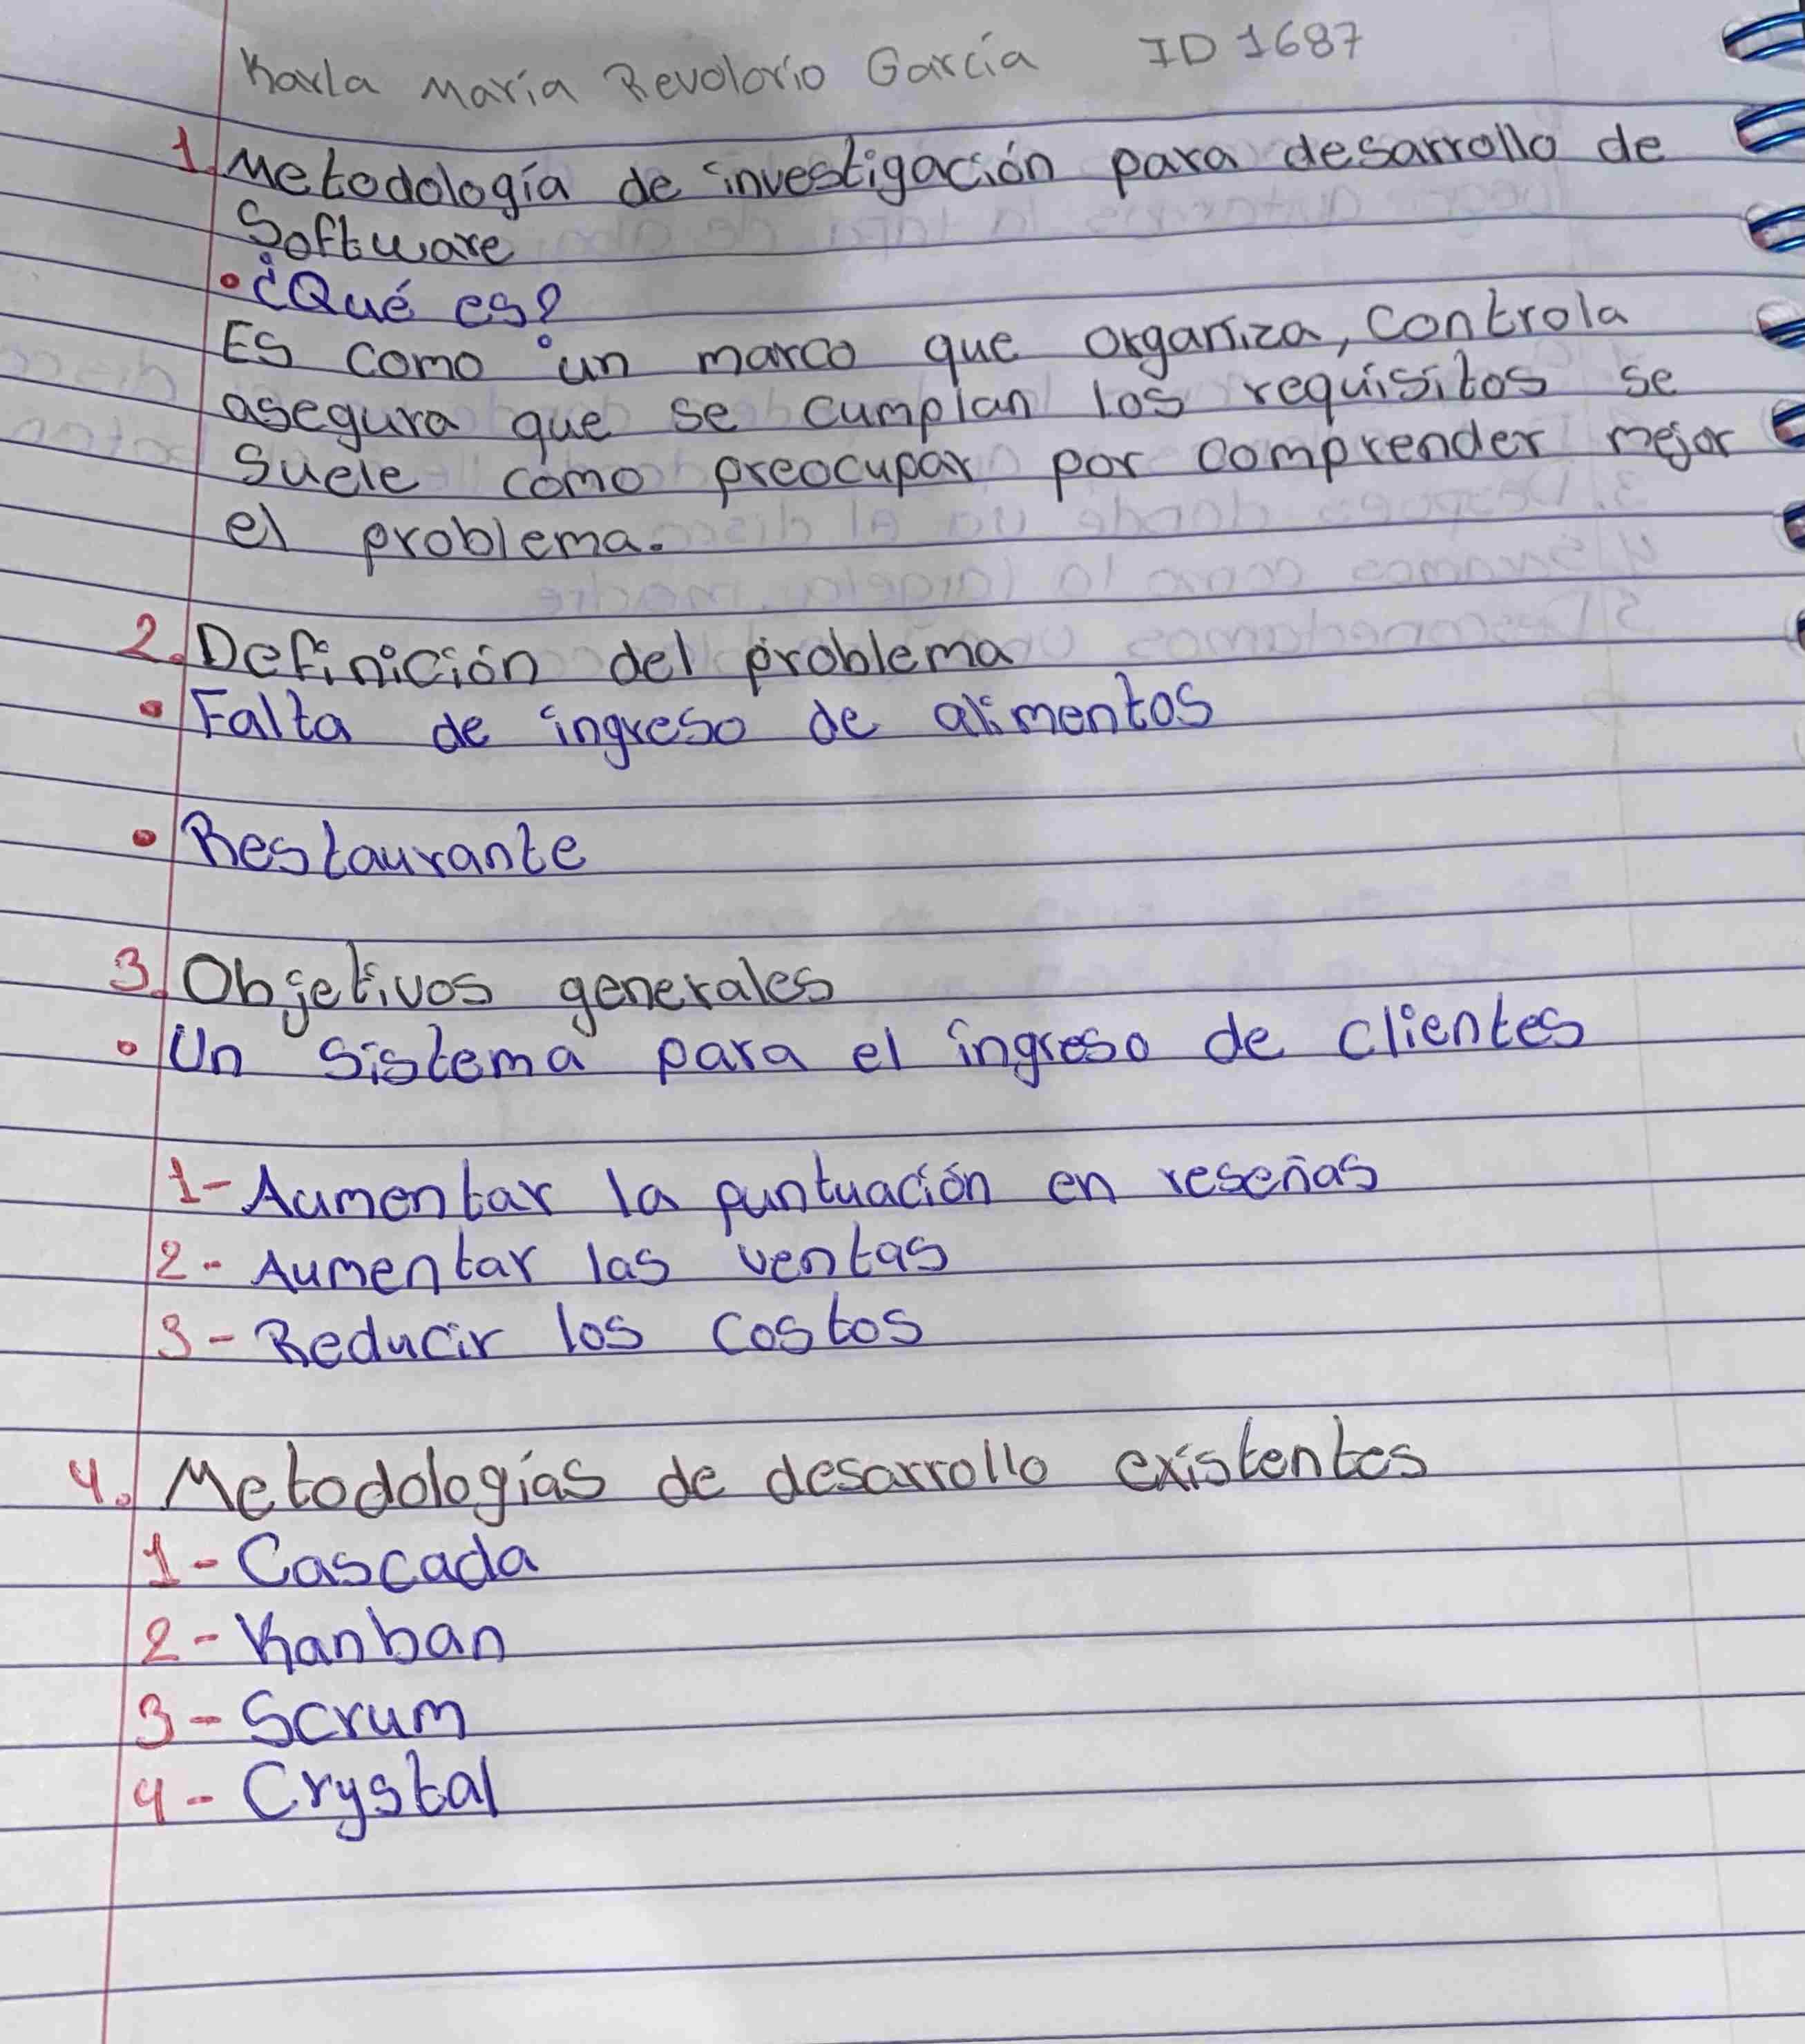 Karla María Revolorio García ID 1687
1. Metodología de investigación para desarrollo de
Software
• ¿Qué es?
Es como un marco que organiza, controla
asegura que se cumplan los requisitos se
suele como preocupar por comprender mejor
el problema.
2. Definición del problema
• Falta de ingreso de alimentos
• Restaurante
3. Objetivos generales
• Un sistema para el ingreso de clientes
1- Aumentar la puntuación en reseñas
2- Aumentar las ventas
3- Reducir los costos
4. Metodologías de desarrollo existentes
1- Cascada
2- Kanban
3- Scrum
4- Crystal